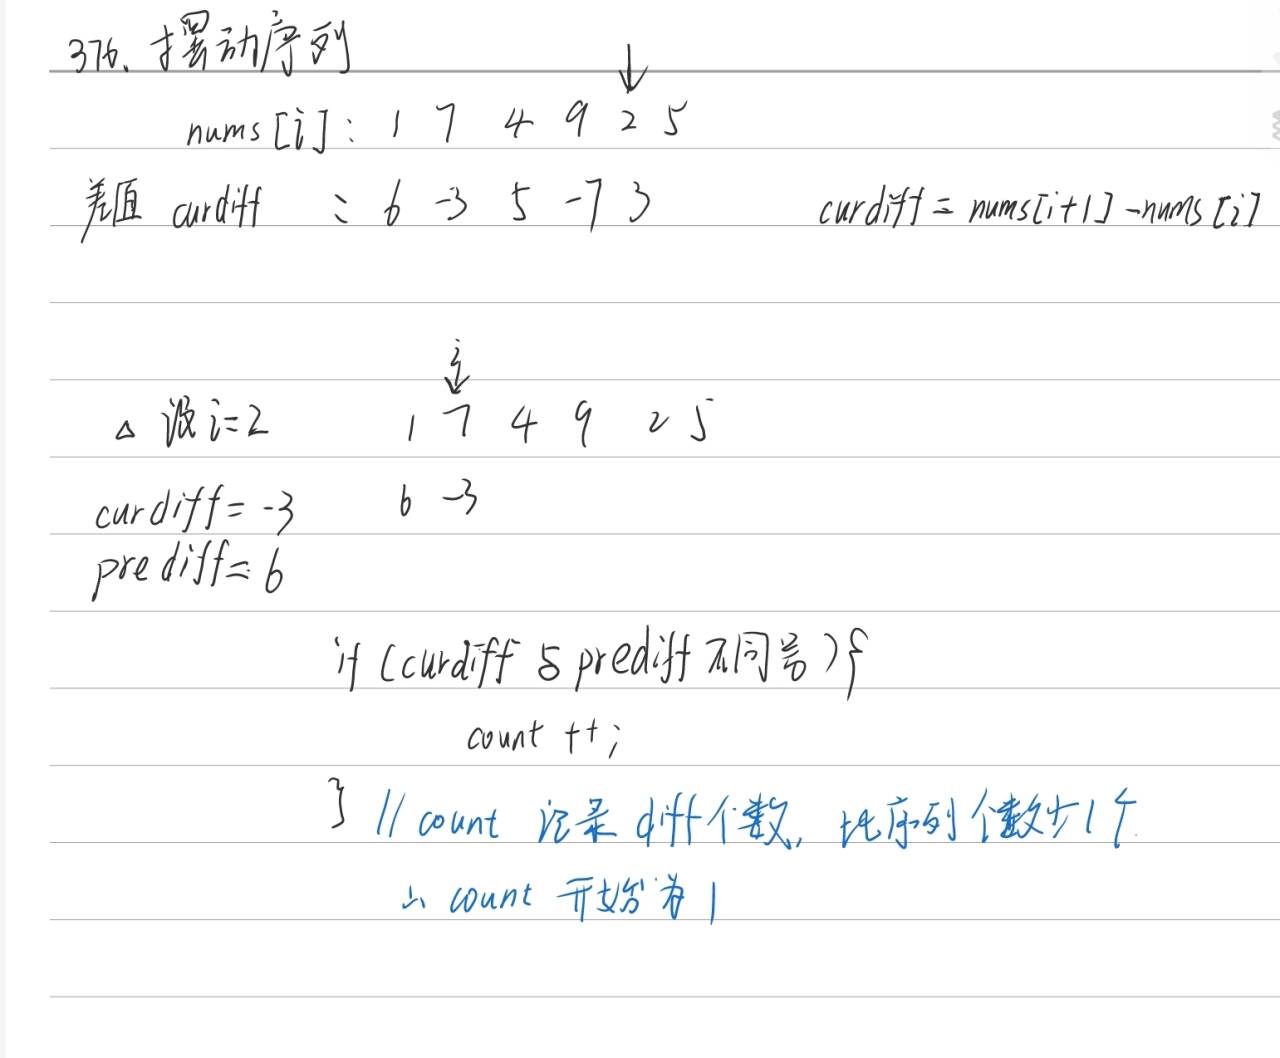 376、摆动序列
nums[i]: 1 7 4 9 2 5
差值 curdiff : 6 -3 5 -7 3 curdiff = nums[i+1] -nums[i]
i
△ 设 i=2 1 7 4 9 2 5
curdiff = -3 6 -3
prediff = 6
if (curdiff 与 prediff 不同号){
count ++;
} // count 记录 diff个数, 比序列个数少1个
∴ count 开始为 1